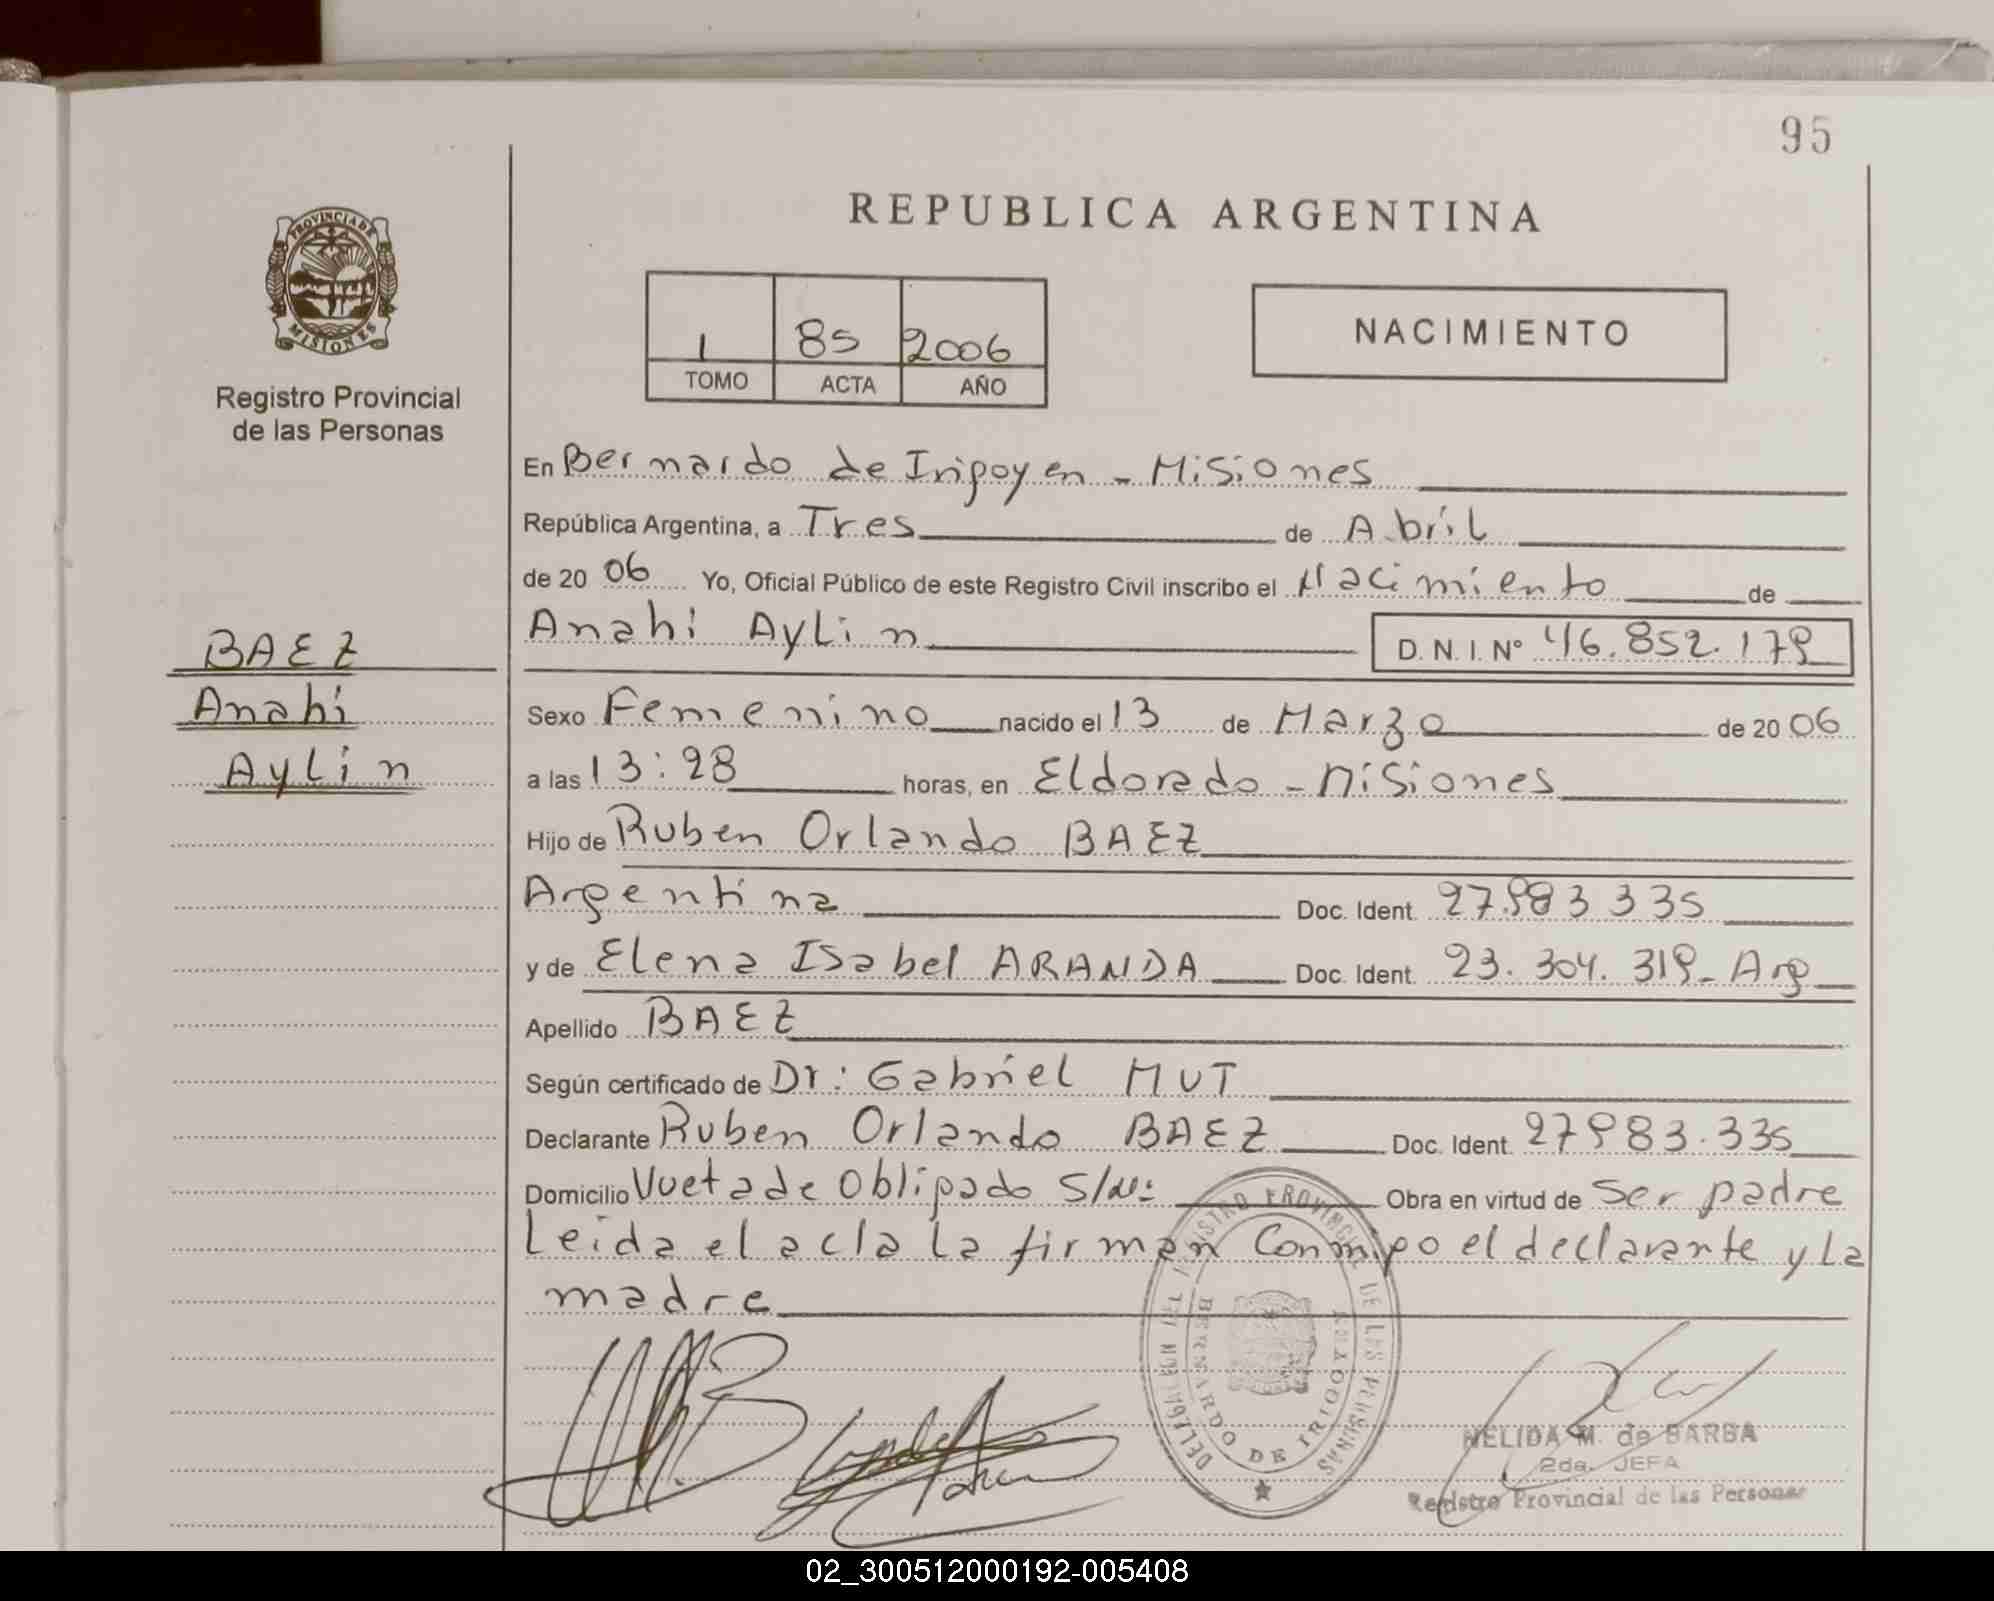 95
REPUBLICA ARGENTINA
PROVINCIA DE
MISIONES
Registro Provincial
de las Personas
1 85 2006
TOMO ACTA AÑO
NACIMIENTO
BAEZ
Anahi
Aylin
En Bernardo de Irigoyen - Misiones
República Argentina, a Tres de Abril
de 20 06 Yo, Oficial Público de este Registro Civil inscribo el Nacimiento de
Anahi Aylin D. N. I. Nº 46.852.179
Sexo Femenino nacido el 13 de Marzo de 20 06
a las 13:28 horas, en Eldorado - Misiones
Hijo de Ruben Orlando BAEZ
Argentina Doc. Ident. 27.983 335
y de Elena Isabel ARANDA Doc. Ident. 23.304.319- Arg
Apellido BAEZ
Según certificado de Dr: Gabriel MUT
Declarante Ruben Orlando BAEZ Doc. Ident. 27983.335
Domicilio Vuelta de Obligado S/N: Obra en virtud de Ser padre
Leida el acta la firman Conmigo el declarante y La
madre
DELEGACION DEL REGISTRO PROVINCIAL DE LAS PERSONAS
BERNARDO DE IRIGOYEN
NELIDA M. de BARBA
2da. JEFA
Registro Provincial de las Personas
02_300512000192-005408